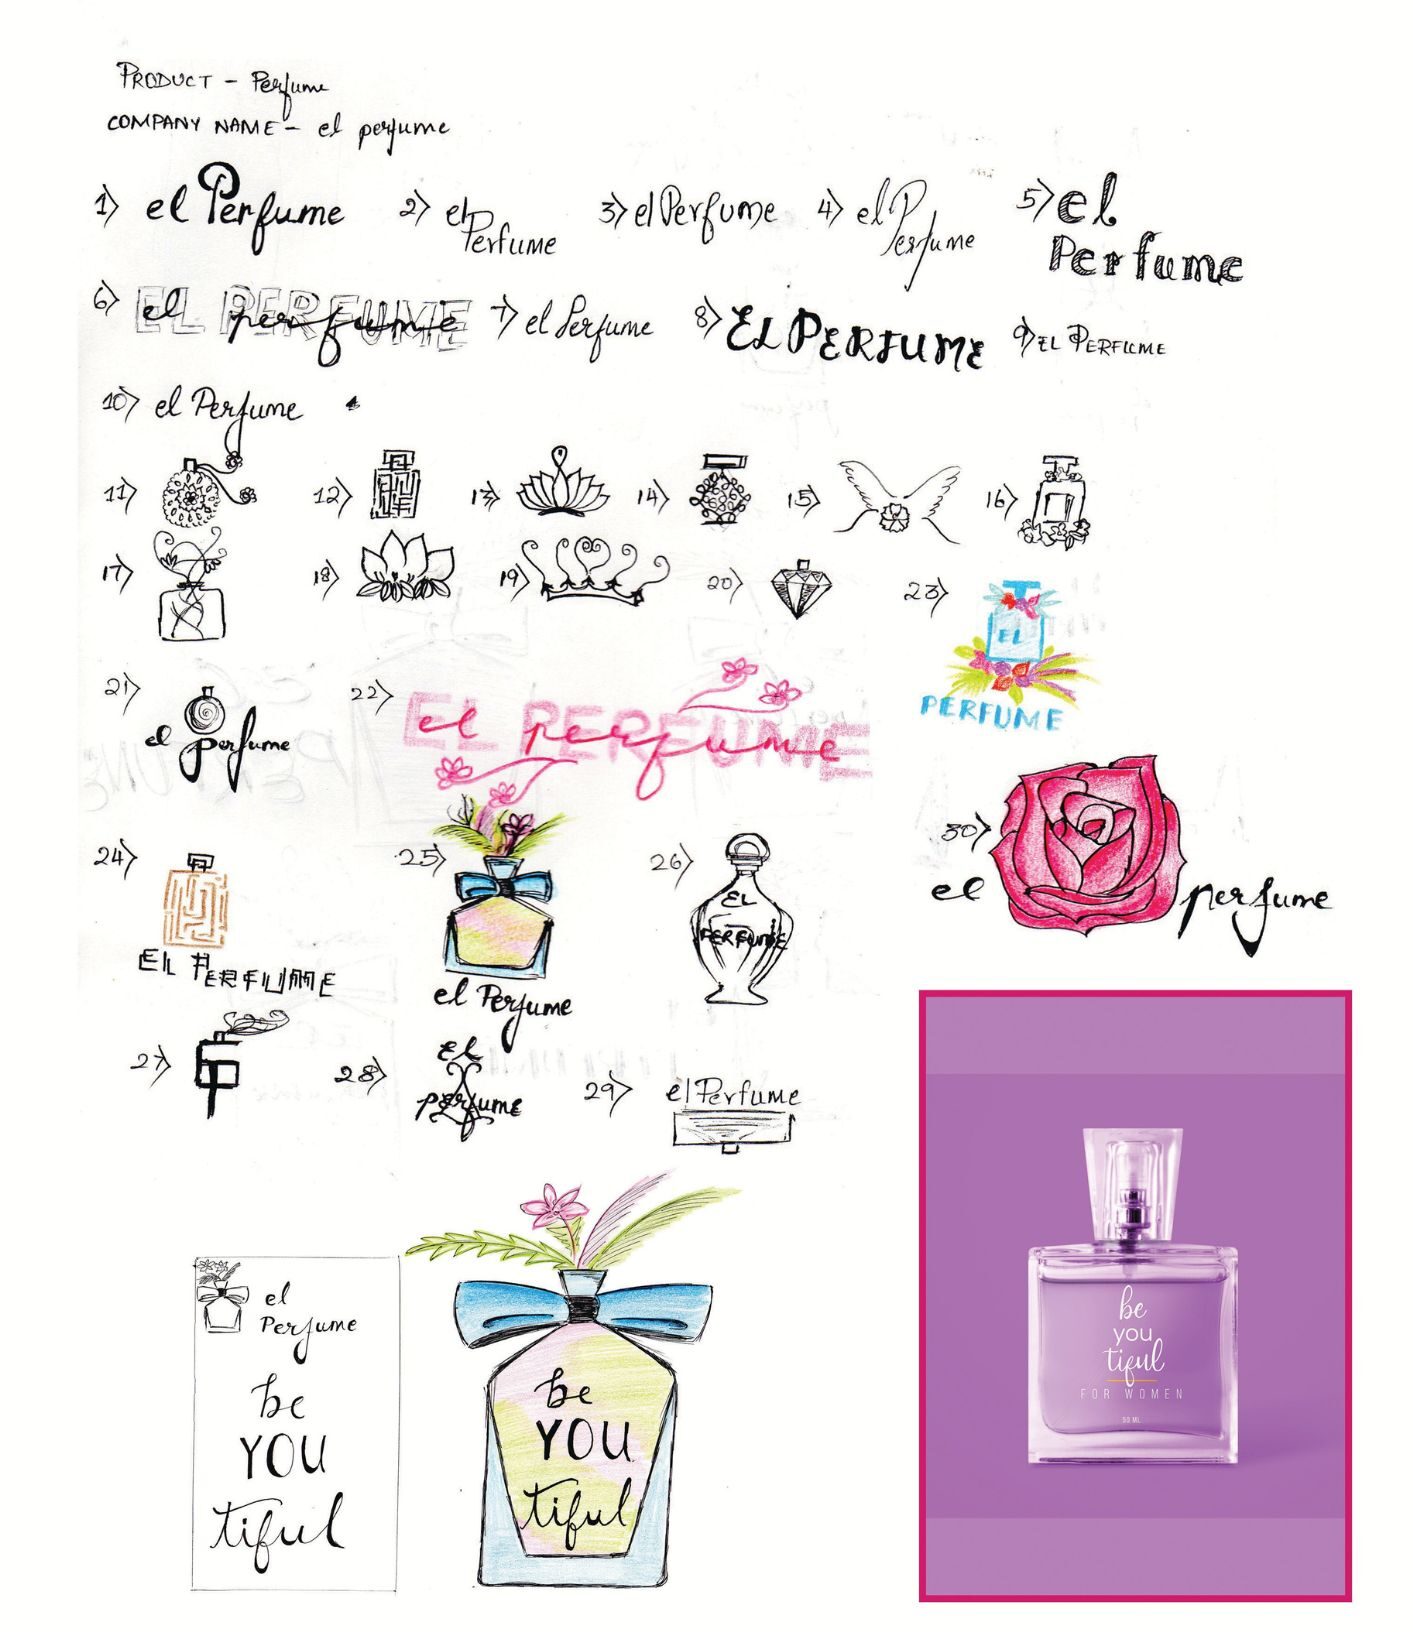 PRODUCT - Perfume
COMPANY NAME - el perfume
1) el Perfume
2) el
Perfume
3) el Perfume
4) el P
Perfume
5) el
Perfume
6) EL PERFUME
el perfume
7) el Perfume
8) EL PERFUME
9) EL PERFUME
10) el Perfume
11)
12)
13)
14)
15)
16)
17)
18)
19)
20)
23)
EL
PERFUME
21)
el perfume
22)
EL PERFUME
el perfume
24)
EL PERFUME
25)
el Perfume
26)
EL
PERFUME
30)
el perfume
27)
28)
El
perfume
29)
el Perfume
el
Perfume
be
YOU
tiful
be
YOU
tiful
be
you
tiful
FOR WOMEN
50 ML